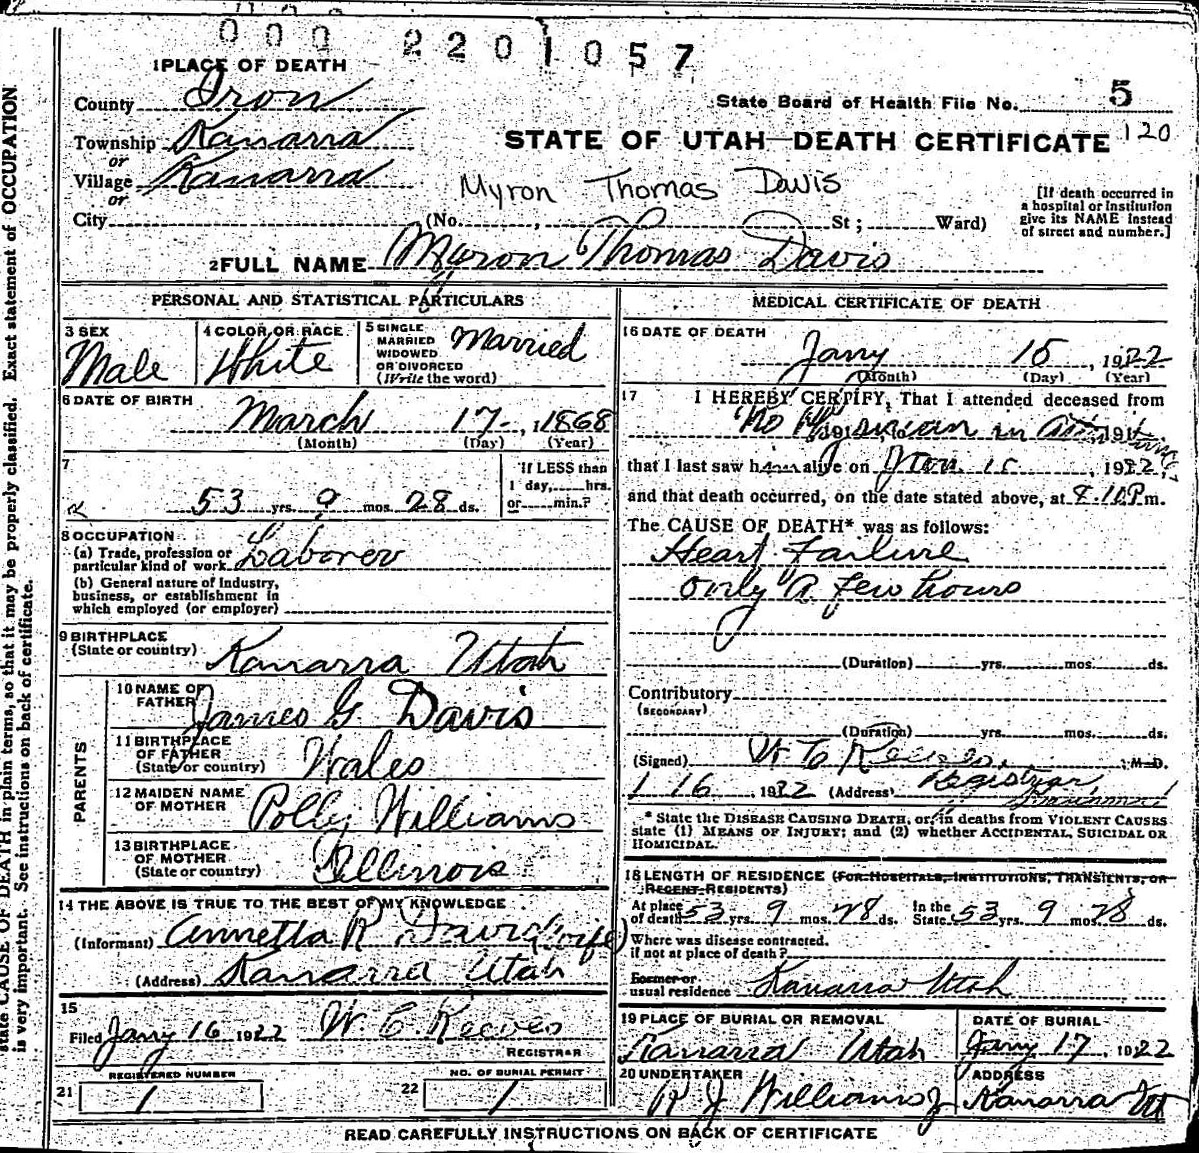 000 2201057
1 PLACE OF DEATH
County Iron
State Board of Health File No. 5
Township Kanarra
or
STATE OF UTAH—DEATH CERTIFICATE 120
Village Kanarra
or
Myron Thomas Davis
City (No. , St ; Ward)
[If death occurred in
a hospital or institution
give its NAME instead
of street and number.]
2 FULL NAME Myron Thomas Davis
PERSONAL AND STATISTICAL PARTICULARS
3 SEX
Male
4 COLOR OR RACE
White
5 SINGLE
MARRIED
WIDOWED
OR DIVORCED
(Write the word)
Married
6 DATE OF BIRTH
March 17 , 1868
(Month) (Day) (Year)
7
53 yrs. 9 mos. 28 ds.
If LESS than
1 day, hrs.
or min.?
8 OCCUPATION
(a) Trade, profession or
particular kind of work Laborer
(b) General nature of industry,
business, or establishment in
which employed (or employer)
9 BIRTHPLACE
(State or country) Kanarra Utah
PARENTS
10 NAME OF
FATHER James G Davis
11 BIRTHPLACE
OF FATHER
(State or country) Wales
12 MAIDEN NAME
OF MOTHER Polly Williams
13 BIRTHPLACE
OF MOTHER
(State or country) Illinois
14 THE ABOVE IS TRUE TO THE BEST OF MY KNOWLEDGE
(Informant) Annetta R Davis (wife)
(Address) Kanarra Utah
15
Filed Jany 16 1922 W. C. Reeves
REGISTRAR
REGISTERED NUMBER
21 1
NO. OF BURIAL PERMIT
22 1
MEDICAL CERTIFICATE OF DEATH
16 DATE OF DEATH
Jany 15 , 1922
(Month) (Day) (Year)
17 I HEREBY CERTIFY, That I attended deceased from
No Physician in
that I last saw h alive on Jan. 15 , 1922,
and that death occurred, on the date stated above, at 8.10 P m.
The CAUSE OF DEATH* was as follows:
Heart Failure
only a few hours
(Duration) yrs. mos. ds.
Contributory
(SECONDARY)
(Duration) yrs. mos. ds.
(Signed) Reeves, M. D.
1 16 , 1922 (Address) Registrar
* State the DISEASE CAUSING DEATH, or, in deaths from VIOLENT CAUSES
state (1) MEANS OF INJURY; and (2) whether ACCIDENTAL, SUICIDAL OR
HOMICIDAL.
18 LENGTH OF RESIDENCE (FOR HOSPITALS, INSTITUTIONS, TRANSIENTS, OR
RECENT RESIDENTS)
At place
of death 53 yrs. 9 mos. 28 ds.
In the
State 53 yrs. 9 mos. 28 ds.
Where was disease contracted,
if not at place of death?
Former or
usual residence Kanarra Utah
19 PLACE OF BURIAL OR REMOVAL
Kanarra Utah
DATE OF BURIAL
Jany 17 , 1922
20 UNDERTAKER
R J Williams Jr
ADDRESS
Kanarra Ut
READ CAREFULLY INSTRUCTIONS ON BACK OF CERTIFICATE
state CAUSE OF DEATH in plain terms, so that it may be properly classified. Exact statement of OCCUPATION
is very important. See instructions on back of certificate.